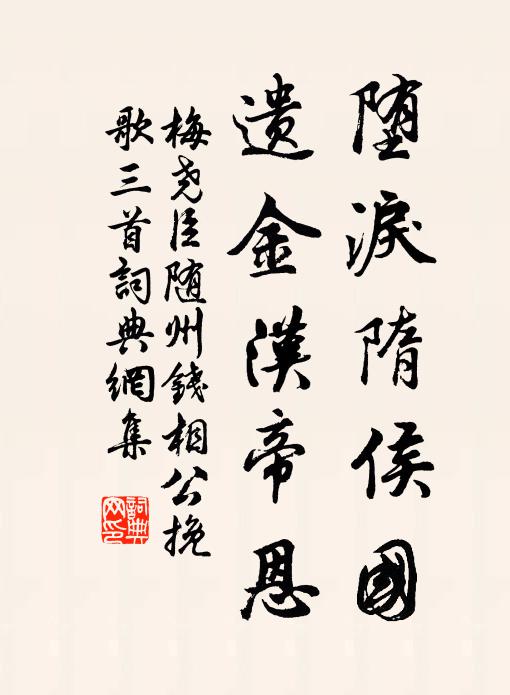 堕淚隋侯國
遺金漢帝恩
梅尧臣随州錢相公挽
歌三首詞典網集
詞典網印